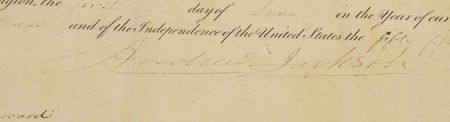 the first day of June in the Year of our
and of the Independence of the United States the fifty fif
Andrew Jackson